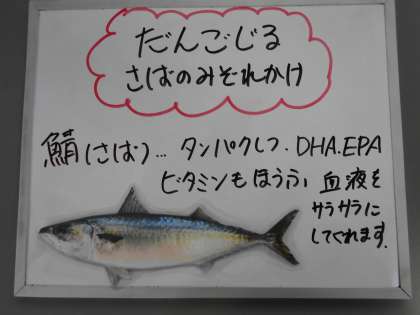 だんごじる
さばのみぞれかけ
鯖(さば)… タンパクしつ、DHA.EPA
ビタミンもほうふ、血液を
サラサラに
してくれます。